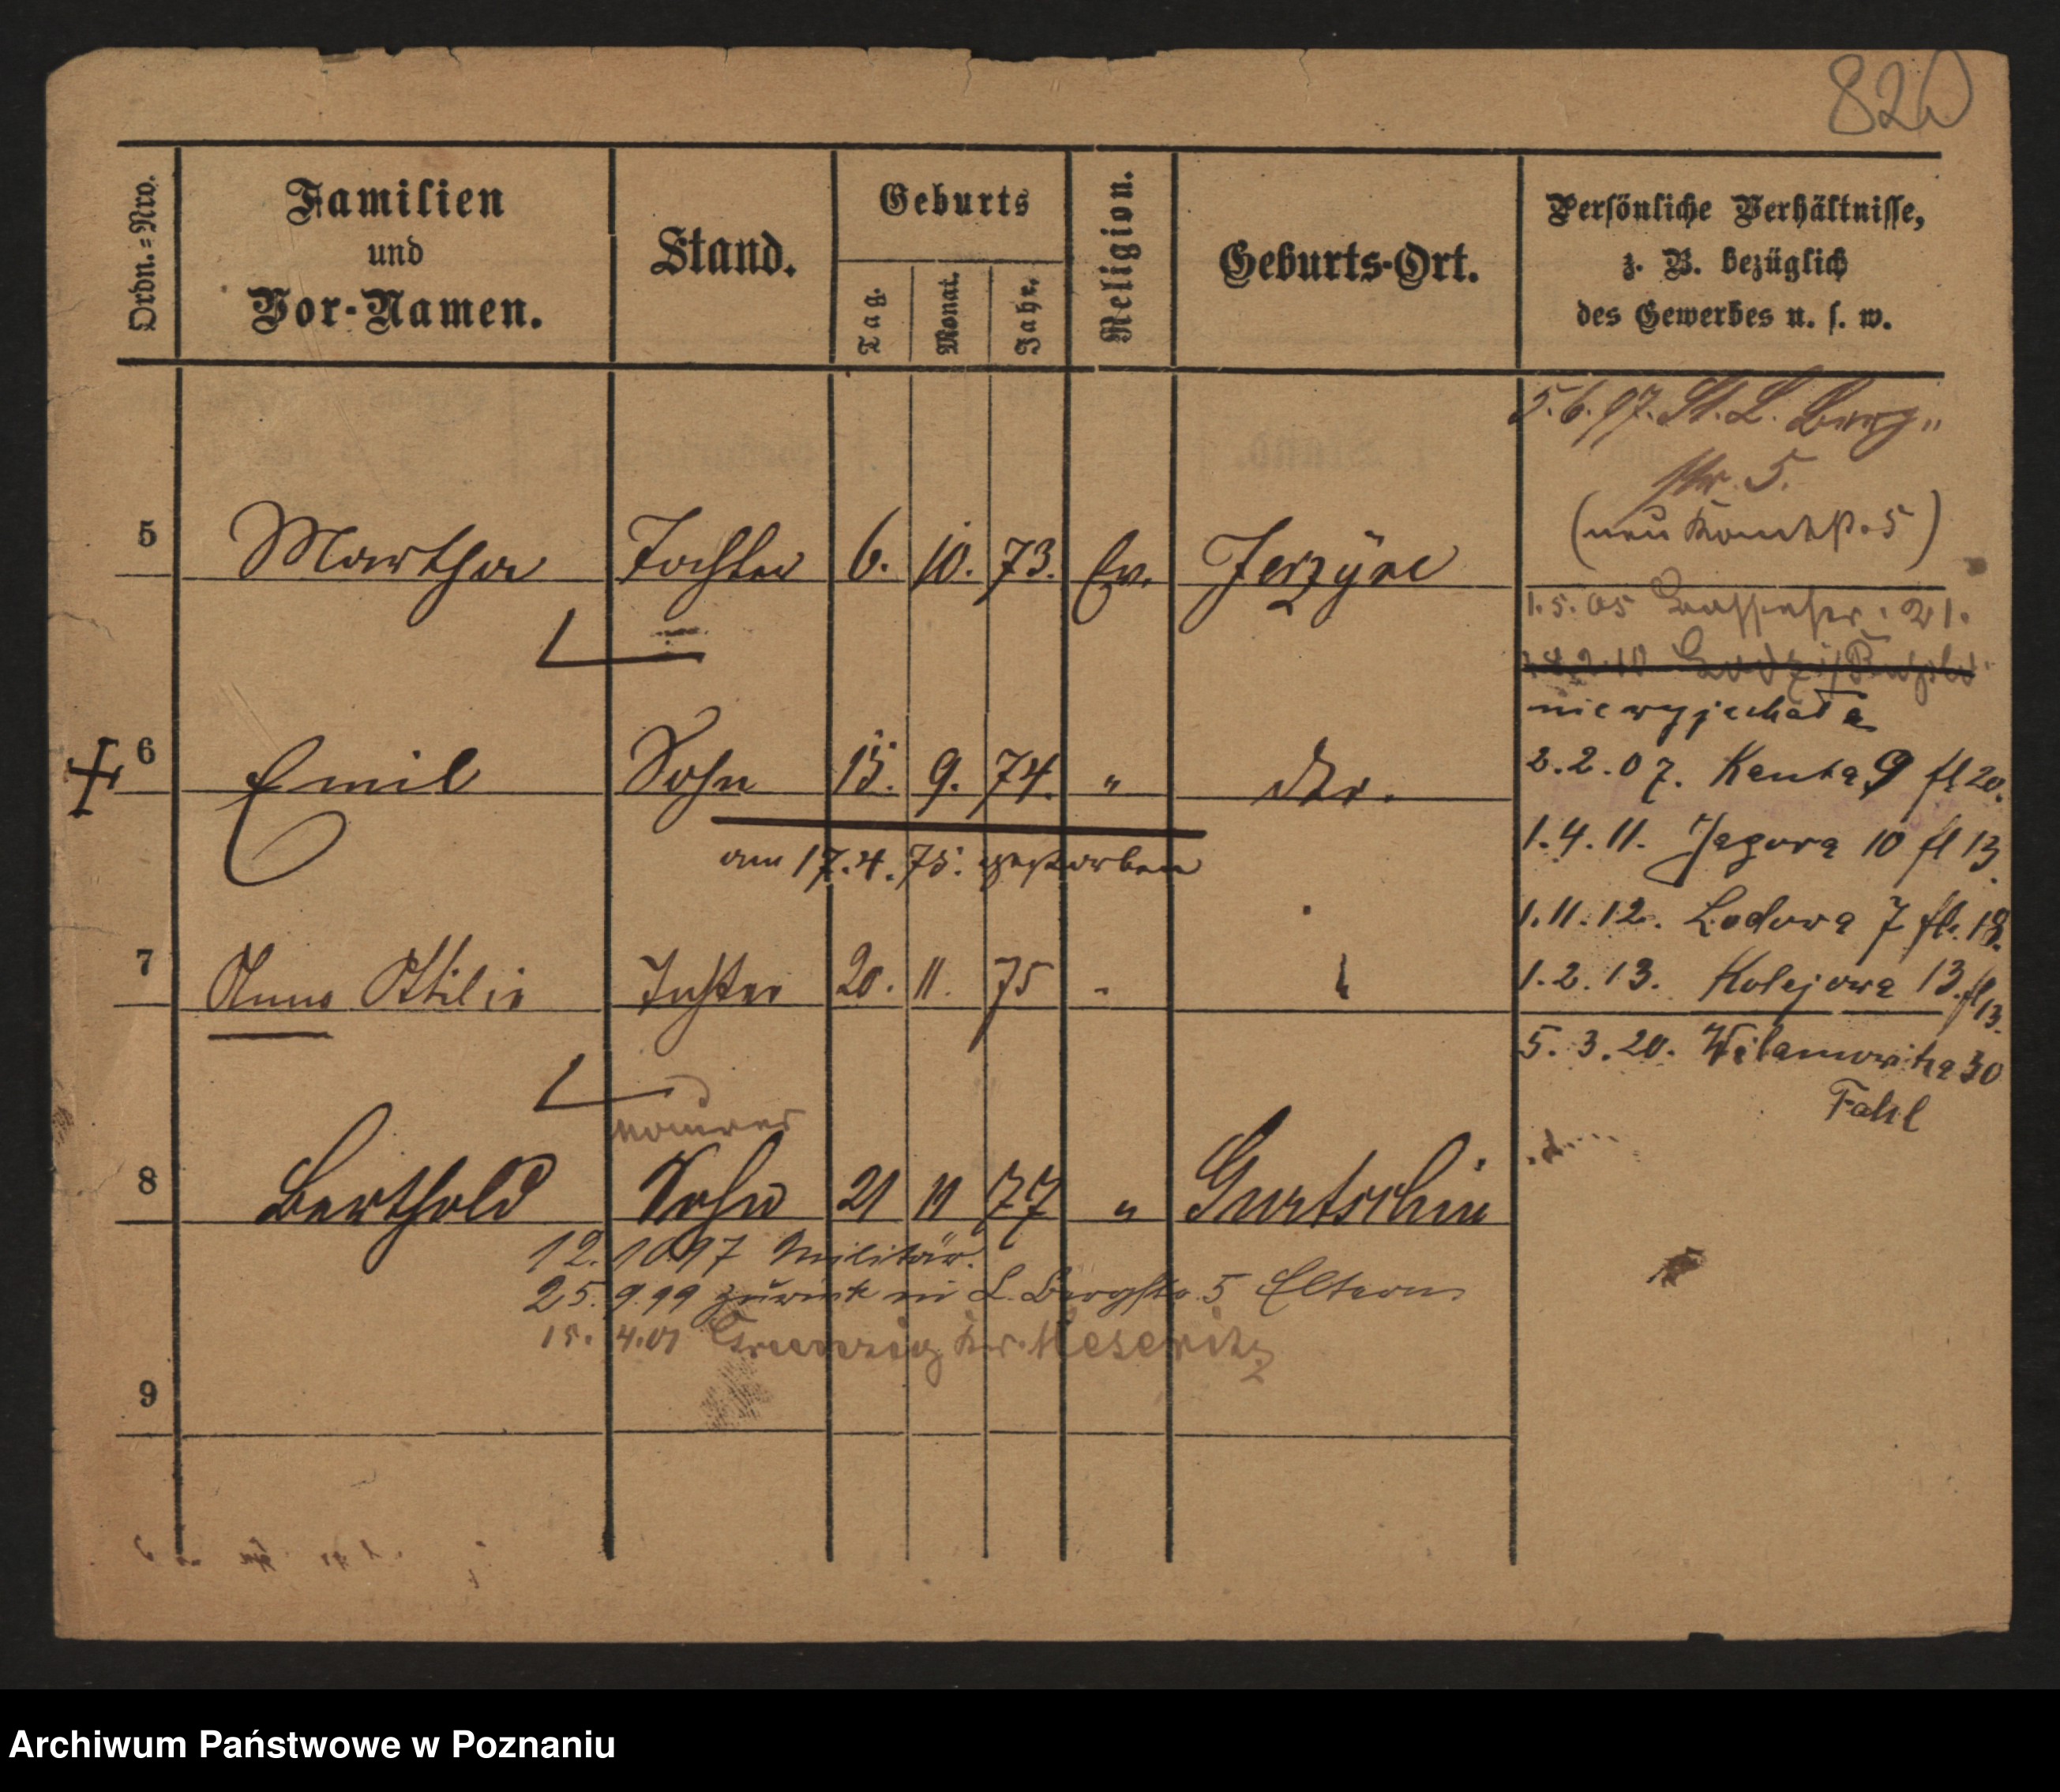 820
Ordn.=Nro.
Familien
und
Vor-Namen.
Stand.
Geburts
Tag.
Monat.
Jahr.
Religion.
Geburts-Ort.
Persönliche Verhältnisse,
z. B. bezüglich
des Gewerbes u. s. w.
5.6.97. St. L. Berg-
str. 5.
5 Martha Tochter 6. 10. 73. Ev. Jerzÿce
(neu 5)
1.5.05 21.
nie wyjechała
6 Emil Sohn 15. 9. 74. " dto.
2.2.07. Kanta 9 fl 20.
am 17.4.75. gestorben
1.4.11. Jasna 10 fl 13.
1.11.12. Lodowa 7 fl. 18.
7 Anna Ottilie Tochter 20. 11. 75 "
1.2.13. Kolejowa 13. fl 13.
5.3.20. 30
Fahl
Maurer
8 Berthold Sohn 21 11 77 " Gurtschin
12.10.97 Militär.
25.9.99 zurück in L. Bergstr. 5 Eltern
15.4.01 Kr. Meseritz
9
Archiwum Państwowe w Poznaniu